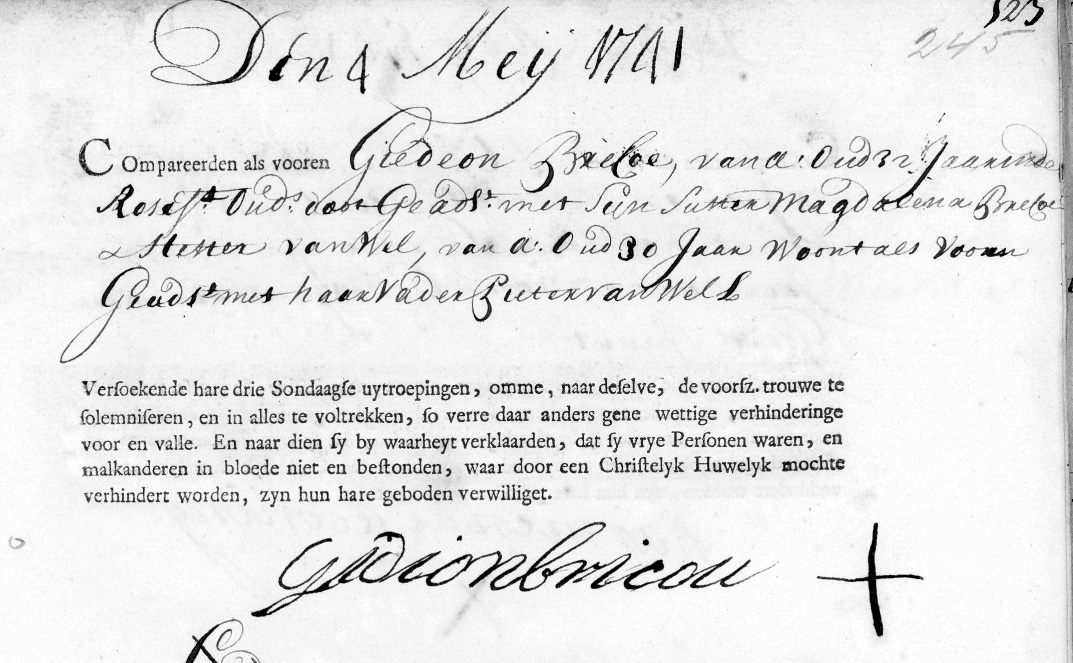 523
245
Den 4 Meij 1741
COmpareerden als vooren Giedeon Brekoe, van a: Oud 32 Jaar inde
Rosest:t Oud:s doot Geads:t met Sijn Suster Magdalena
& Hester van Wel, van a: Oud 30 Jaar Woont als Vooren
Geads:t met haar Vader Pieter van Well
Versoekende hare drie Sondaagse uytroepingen, omme, naar deselve, de voorsz. trouwe te
solemniseren, en in alles te voltrekken, so verre daar anders gene wettige verhinderinge
voor en valle. En naar dien sy by waarheyt verklaarden, dat sy vrye Personen waren, en
malkanderen in bloede niet en bestonden, waar door een Christelyk Huwelyk mochte
verhindert worden, zyn hun hare geboden verwilliget.
gidionbricou